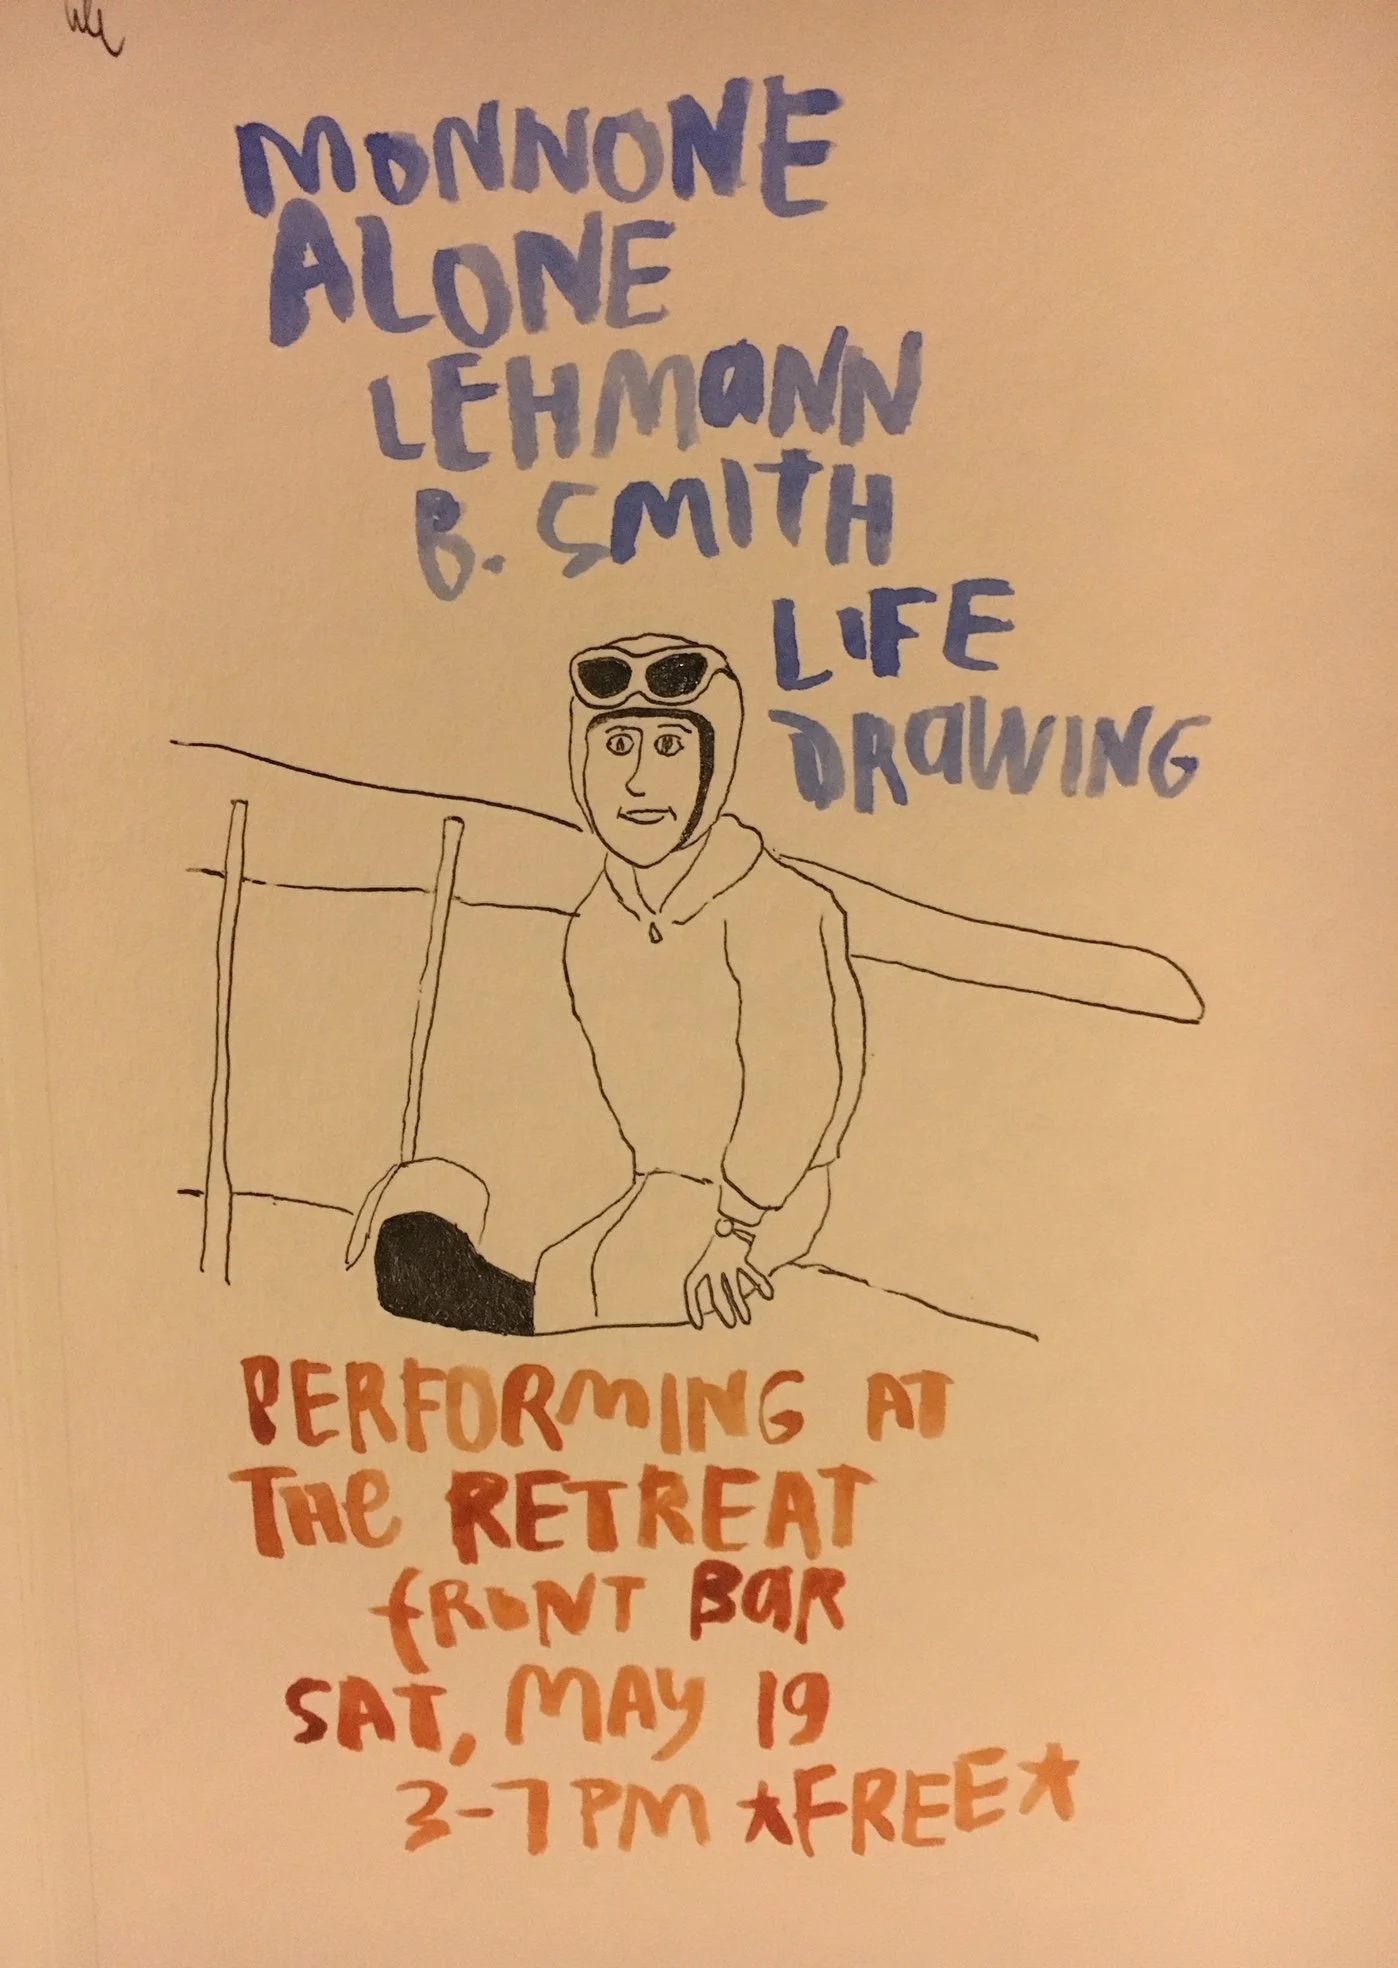 MONNONE
ALONE
LEHMANN
B. SMITH
LIFE
DRAWING
PERFORMING AT
THE RETREAT
FRONT BAR
SAT, MAY 19
3-7PM *FREE*